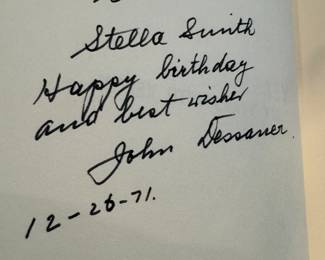 Stella Smith
Happy birthday
and best wishes
John Dessauer.
12-26-71.